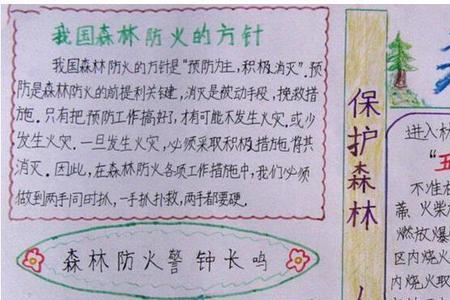 我国森林防火的方针
我国森林防火的方针是“预防为主，积极消灭”.预
防是森林防火的前提利关键，消灭是被动手段，挽救措
施.只有把预防工作搞好，才有可能不发生火灾.或少
发生火灾.一旦发生火灾，必须采取积极措施将其
消灭.因此，在森林防火各项工作措施中，我们必须
做到两手同时抓，一手抓扑救，两手都要硬.
森林防火警钟长鸣
保护森林
人
进入林
“五
不准在
蒂、火柴
燃放爆
区内烧火
内烧火取